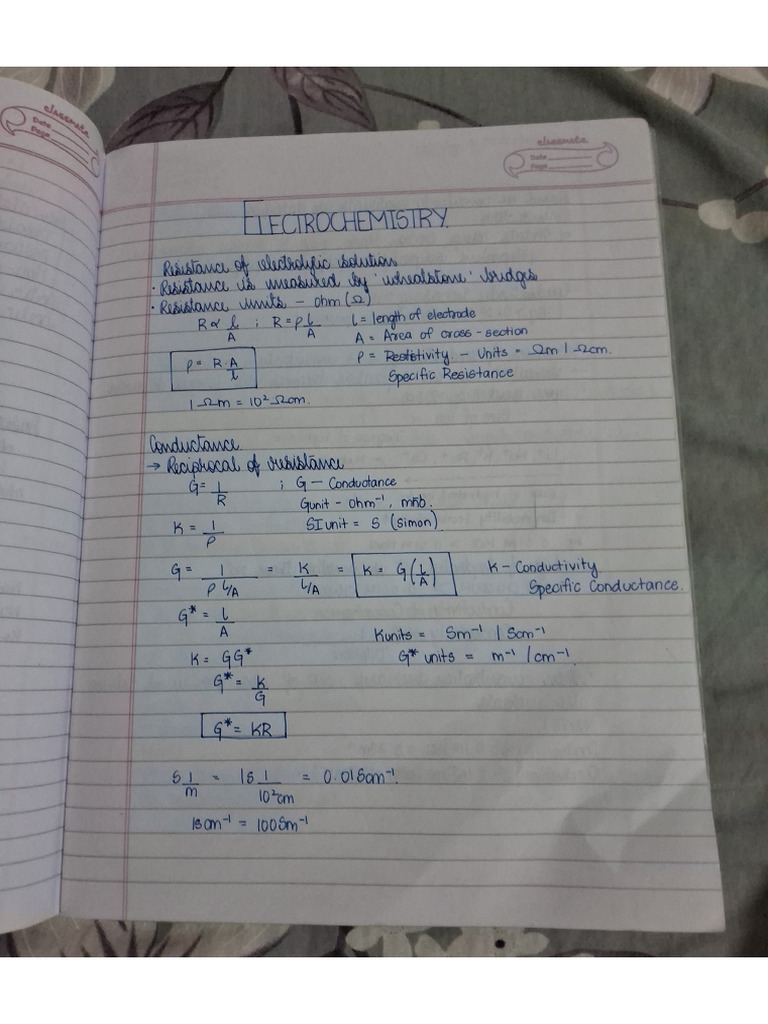 classmate
Date
Page
classmate
Date
Page
ELECTROCHEMISTRY.
Resistance of electrolytic solution
• Resistance is measured by 'wheatstone' bridges
• Resistance units – ohm (Ω)
R ∝ l/A ; R = ρ l/A l = length of electrode
A = Area of cross-section
ρ = R.A/l ρ = Resistivity – Units = Ωm / Ωcm.
Specific Resistance
1 Ωm = 10² Ωcm.
Conductance
→ Reciprocal of resistance
G = 1/R ; G – Conductance
G unit – ohm⁻¹, mho.
K = 1/ρ SI unit = S (Simon)
G = 1/ρ l/A = K/l/A = K = G(l/A) K – Conductivity
Specific Conductance.
G* = l/A
K units = Sm⁻¹ / Scm⁻¹
K = GG* G* units = m⁻¹ / cm⁻¹
G* = K/G
G* = KR
S 1/m = 1S 1/10²cm = 0.01Scm⁻¹.
1Scm⁻¹ = 100Sm⁻¹